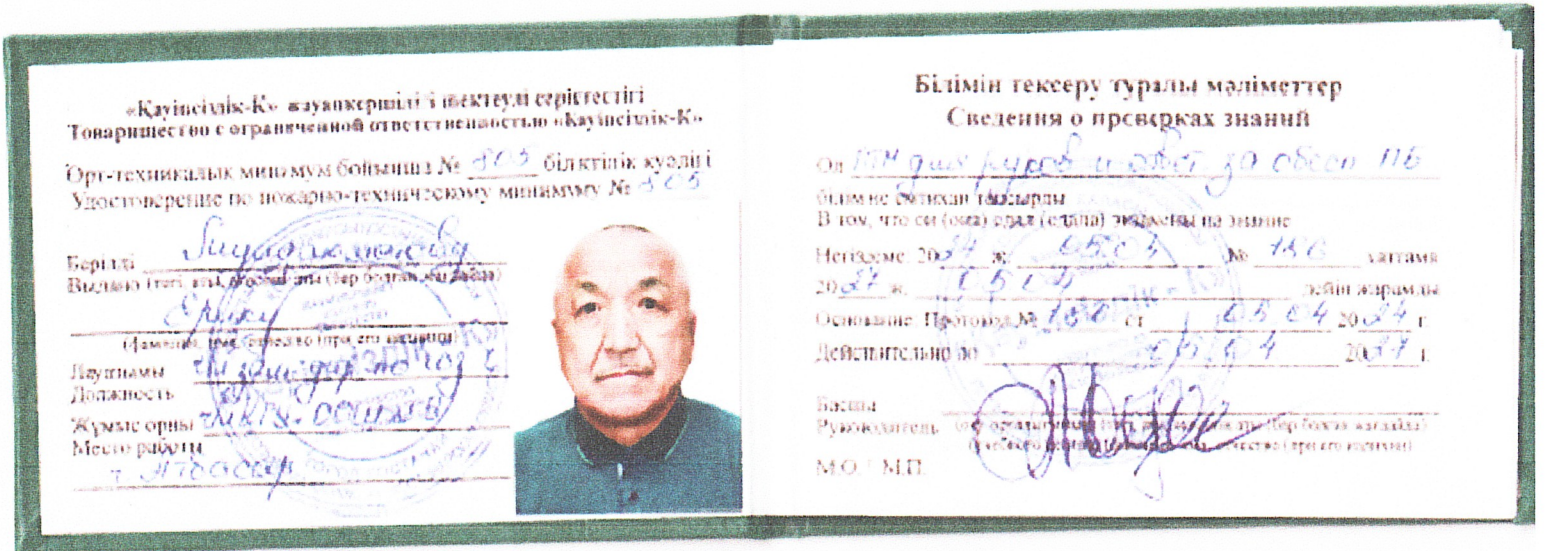 «Қауіпсіздік-К» жауапкершілігі шектеулі серіктестігі
Товарищество с ограниченной ответственностью «Қауіпсіздік-К»
Өрт-техникалық минимум бойынша № 805 біліктілік куәлігі
Удостоверение по пожарно-техническому минимуму № 805
Берілді
Выдано (тегі, аты, әкесінің аты (бар болған жағдайда)
Ерику
(фамилия, имя, отчество (при его наличии)
Лауазымы
Должность
Жұмыс орны
Место работы
г. Атбасар
Білімін тексеру туралы мәліметтер
Сведения о проверках знаний
Ол ПТМ для руков и ответ за обесп ПБ
білімне емтихан тапсырды
В том, что он (она) сдал (сдала) экзамены на знание
Негіздеме 2024 ж. 05.04 № 180 хаттама
2027 ж. 05 04 дейін жарамды
Основание: Протокол № 180 от 05.04 2024 г.
Действительно до 05.04 2027 г.
Басшы
Руководитель
М.О. / М.П.